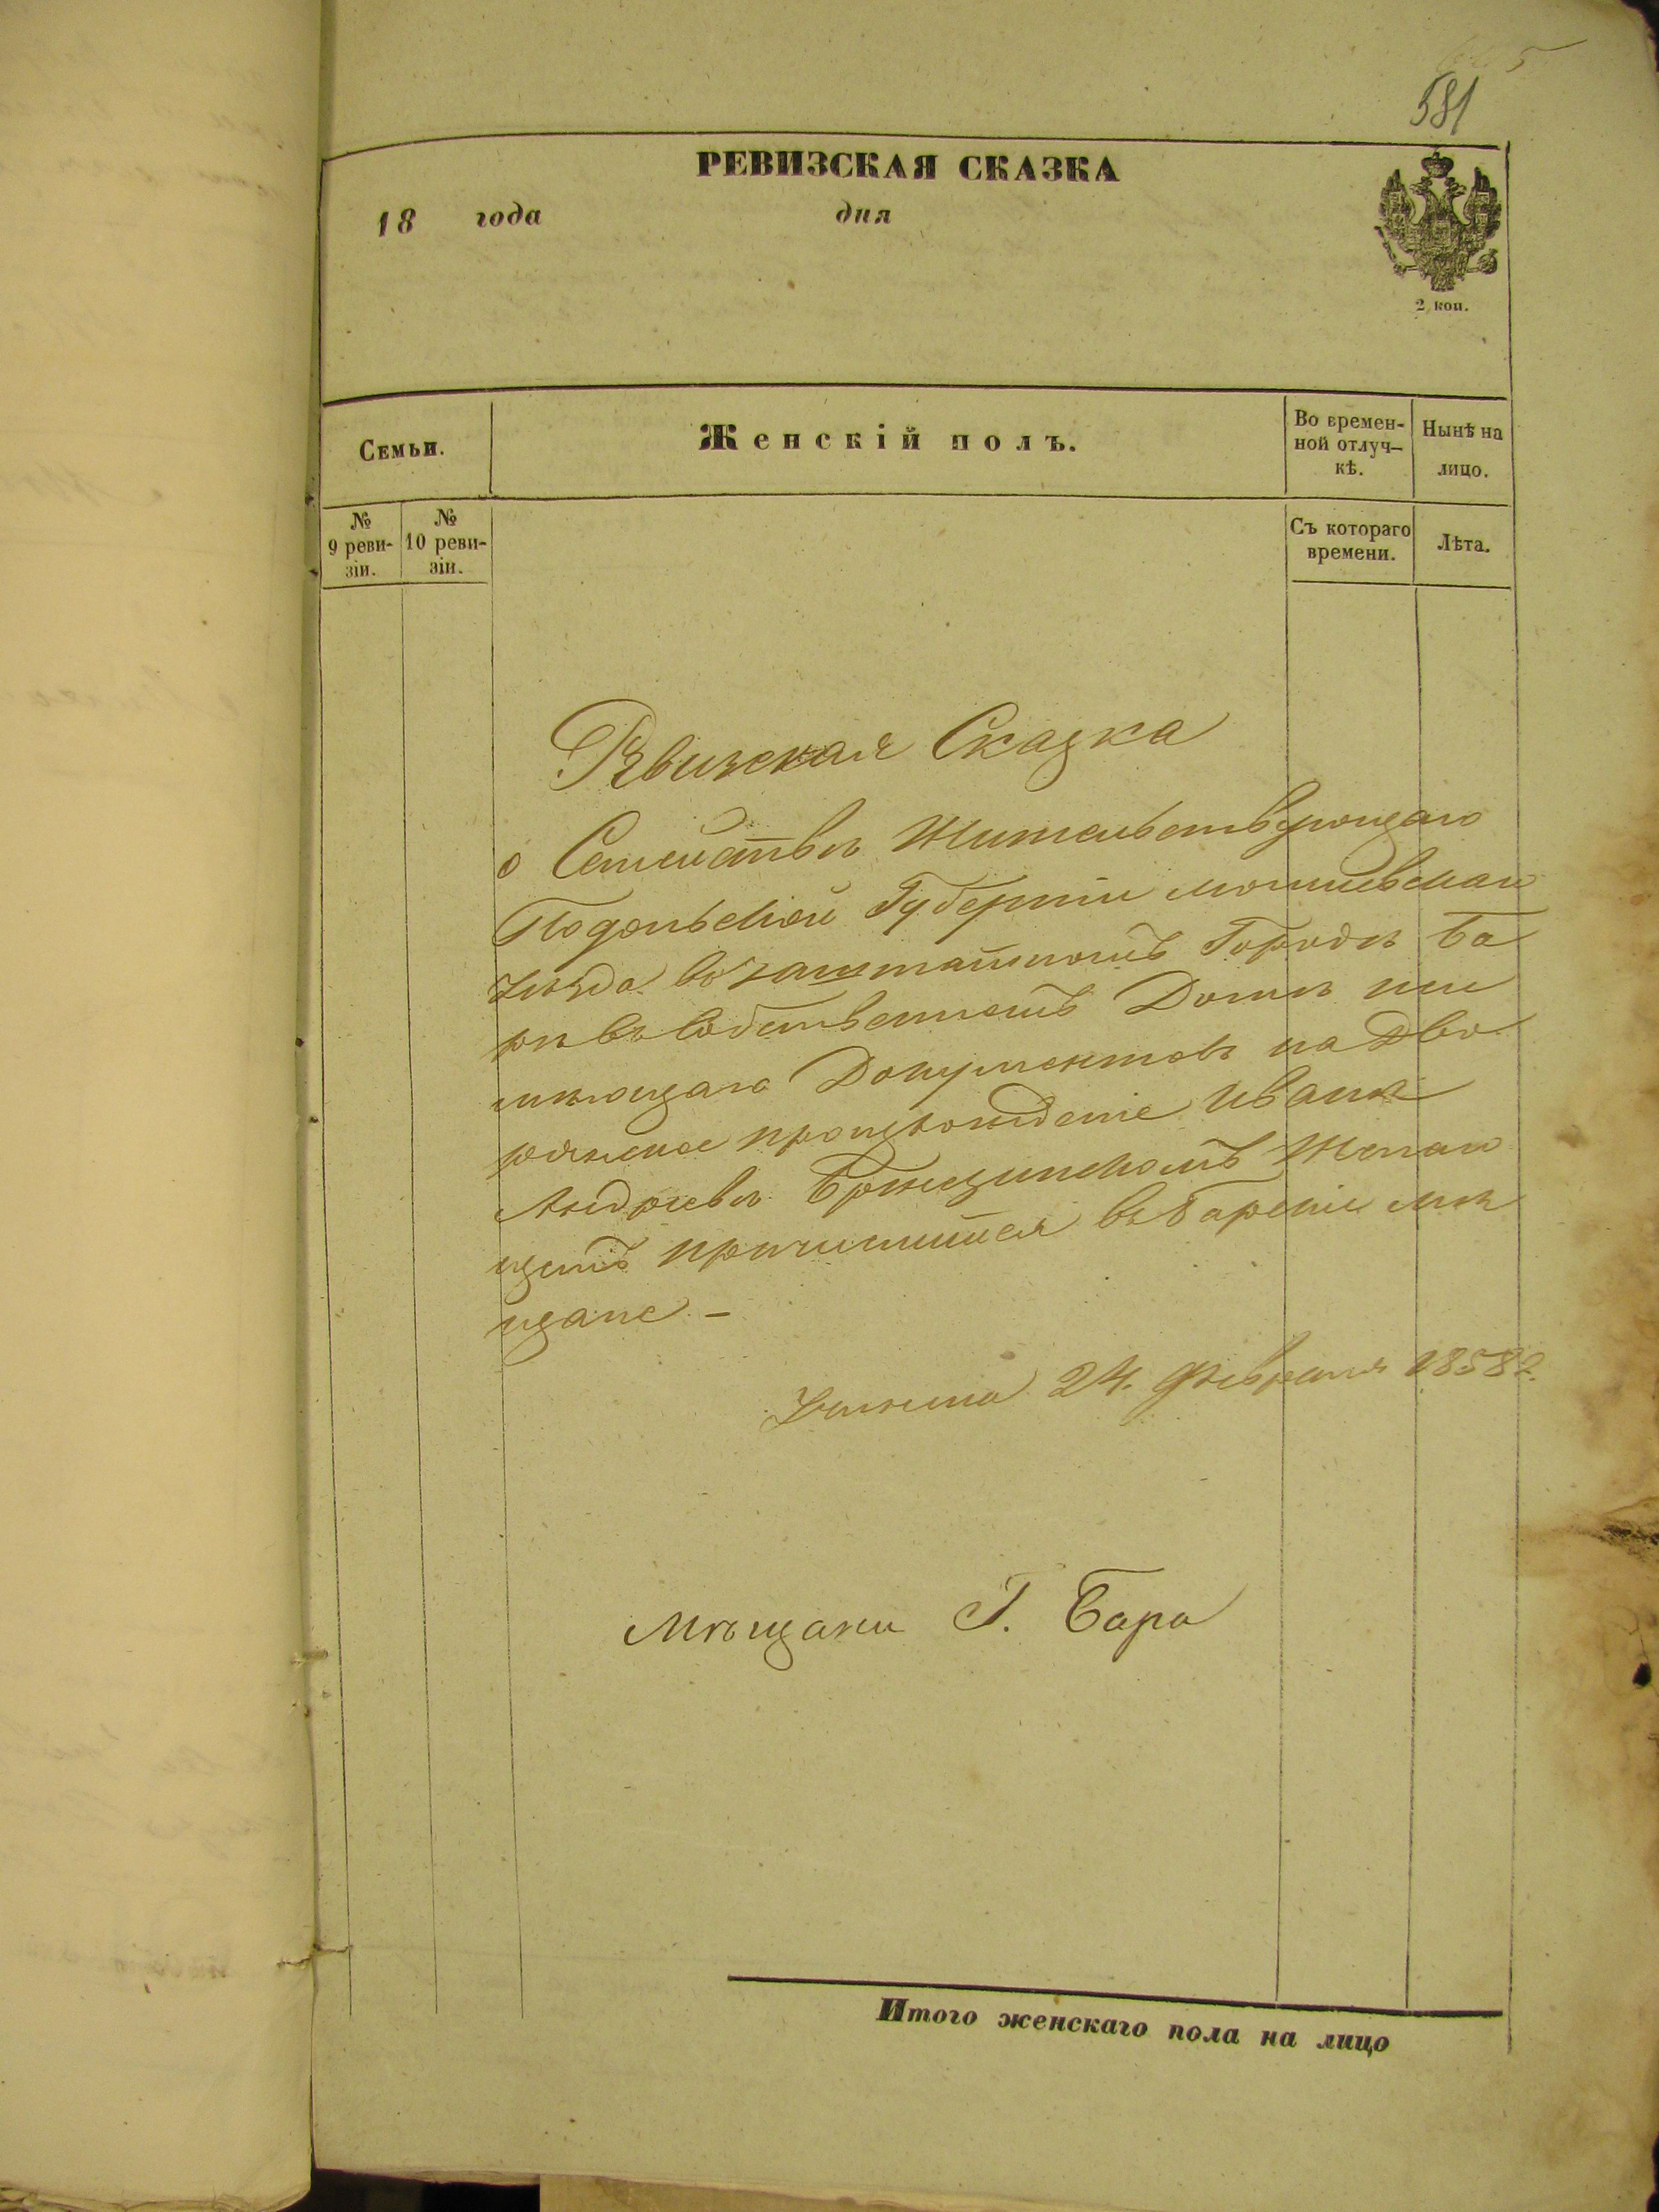 581
РЕВИЗСКАЯ СКАЗКА
18 года дня
2 коп.
Семьи.
Женскій полъ.
Во времен-
ной отлуч-
кѣ.
Нынѣ на
лицо.
№
9 реви-
зіи.
№
10 реви-
зіи.
Съ котораго
времени.
Лѣта.
Ревизская Сказка
о Семействѣ Жительствующаго
Подольской Губерніи могилевскаго
уѣзда въ заштатномъ Городѣ Ба
рѣ въ собственномъ Домѣ не и
мѣющаго Документовъ на Дво
рянское происхожденіе Иванѣ
Андреевѣ Бржезинскомъ Желаю
щемъ причислится въ Барскіе мѣ
щане –
24. Февраля 1858 г.
Мѣщани Г. Бара
Итого женскаго пола на лицо